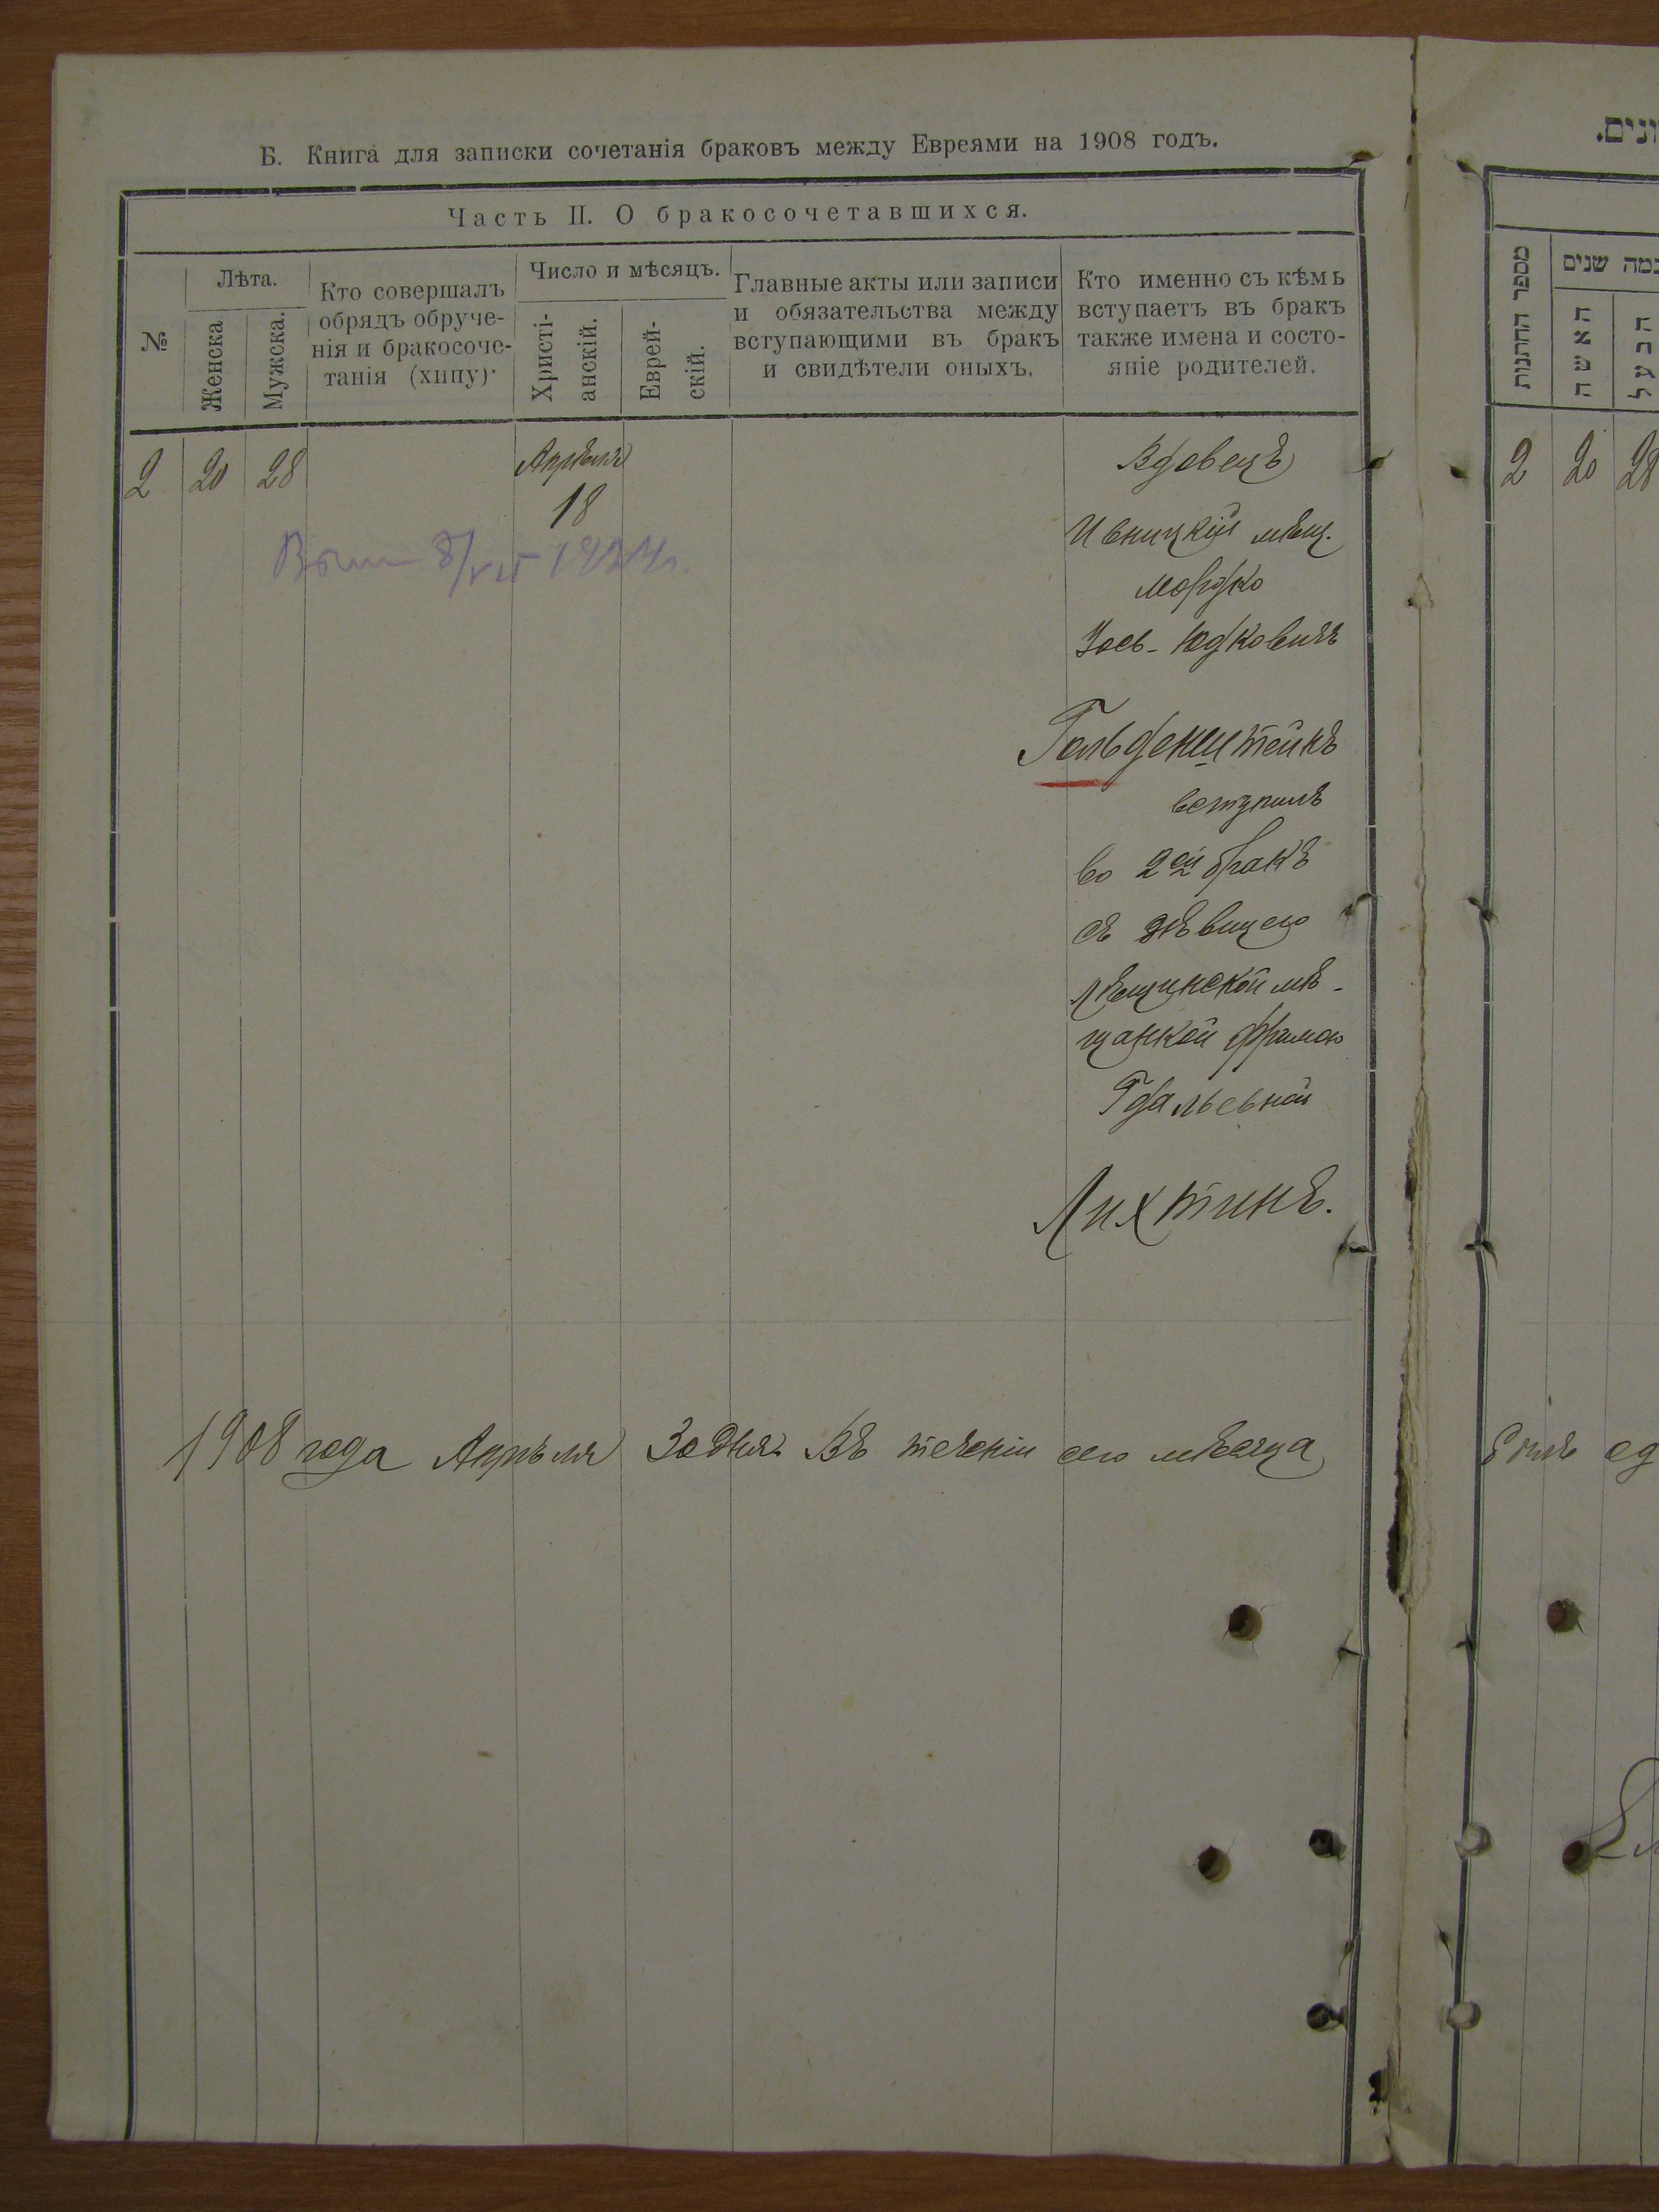 Б. Книга для записки сочетанія браковъ между Евреями на 1908 годъ.
Часть II. О бракосочетавшихся.
№
Лѣта.
Женска
Мужска.
Кто совершалъ
обрядъ обруче-
нія и бракосоче-
танія (хипу).
Число и мѣсяцъ.
Христі-
анскій.
Еврей-
скій.
Главные акты или записи
и обязательства между
вступающими въ бракъ
и свидѣтели оныхъ.
Кто именно съ кѣмъ
вступаетъ въ бракъ
также имена и состо-
яніе родителей.
2 20 28
Апрѣля
18
8/VII 1924г.
Вдовецъ
Ивницкій мѣщ.
Мордко
Зось-Юдковичъ
Гольденштейнъ
вступилъ
во 2ой бракъ
съ дѣвицею
Лѣщинской мѣ-
щанкой Фримою
Гдальевной
Лихтинъ.
1908 года Апрѣля 30 дня Въ теченіи сего мѣсяца
ונים.
מספר החתנות
כמה שנים
האשה
הבעל
2 20 28